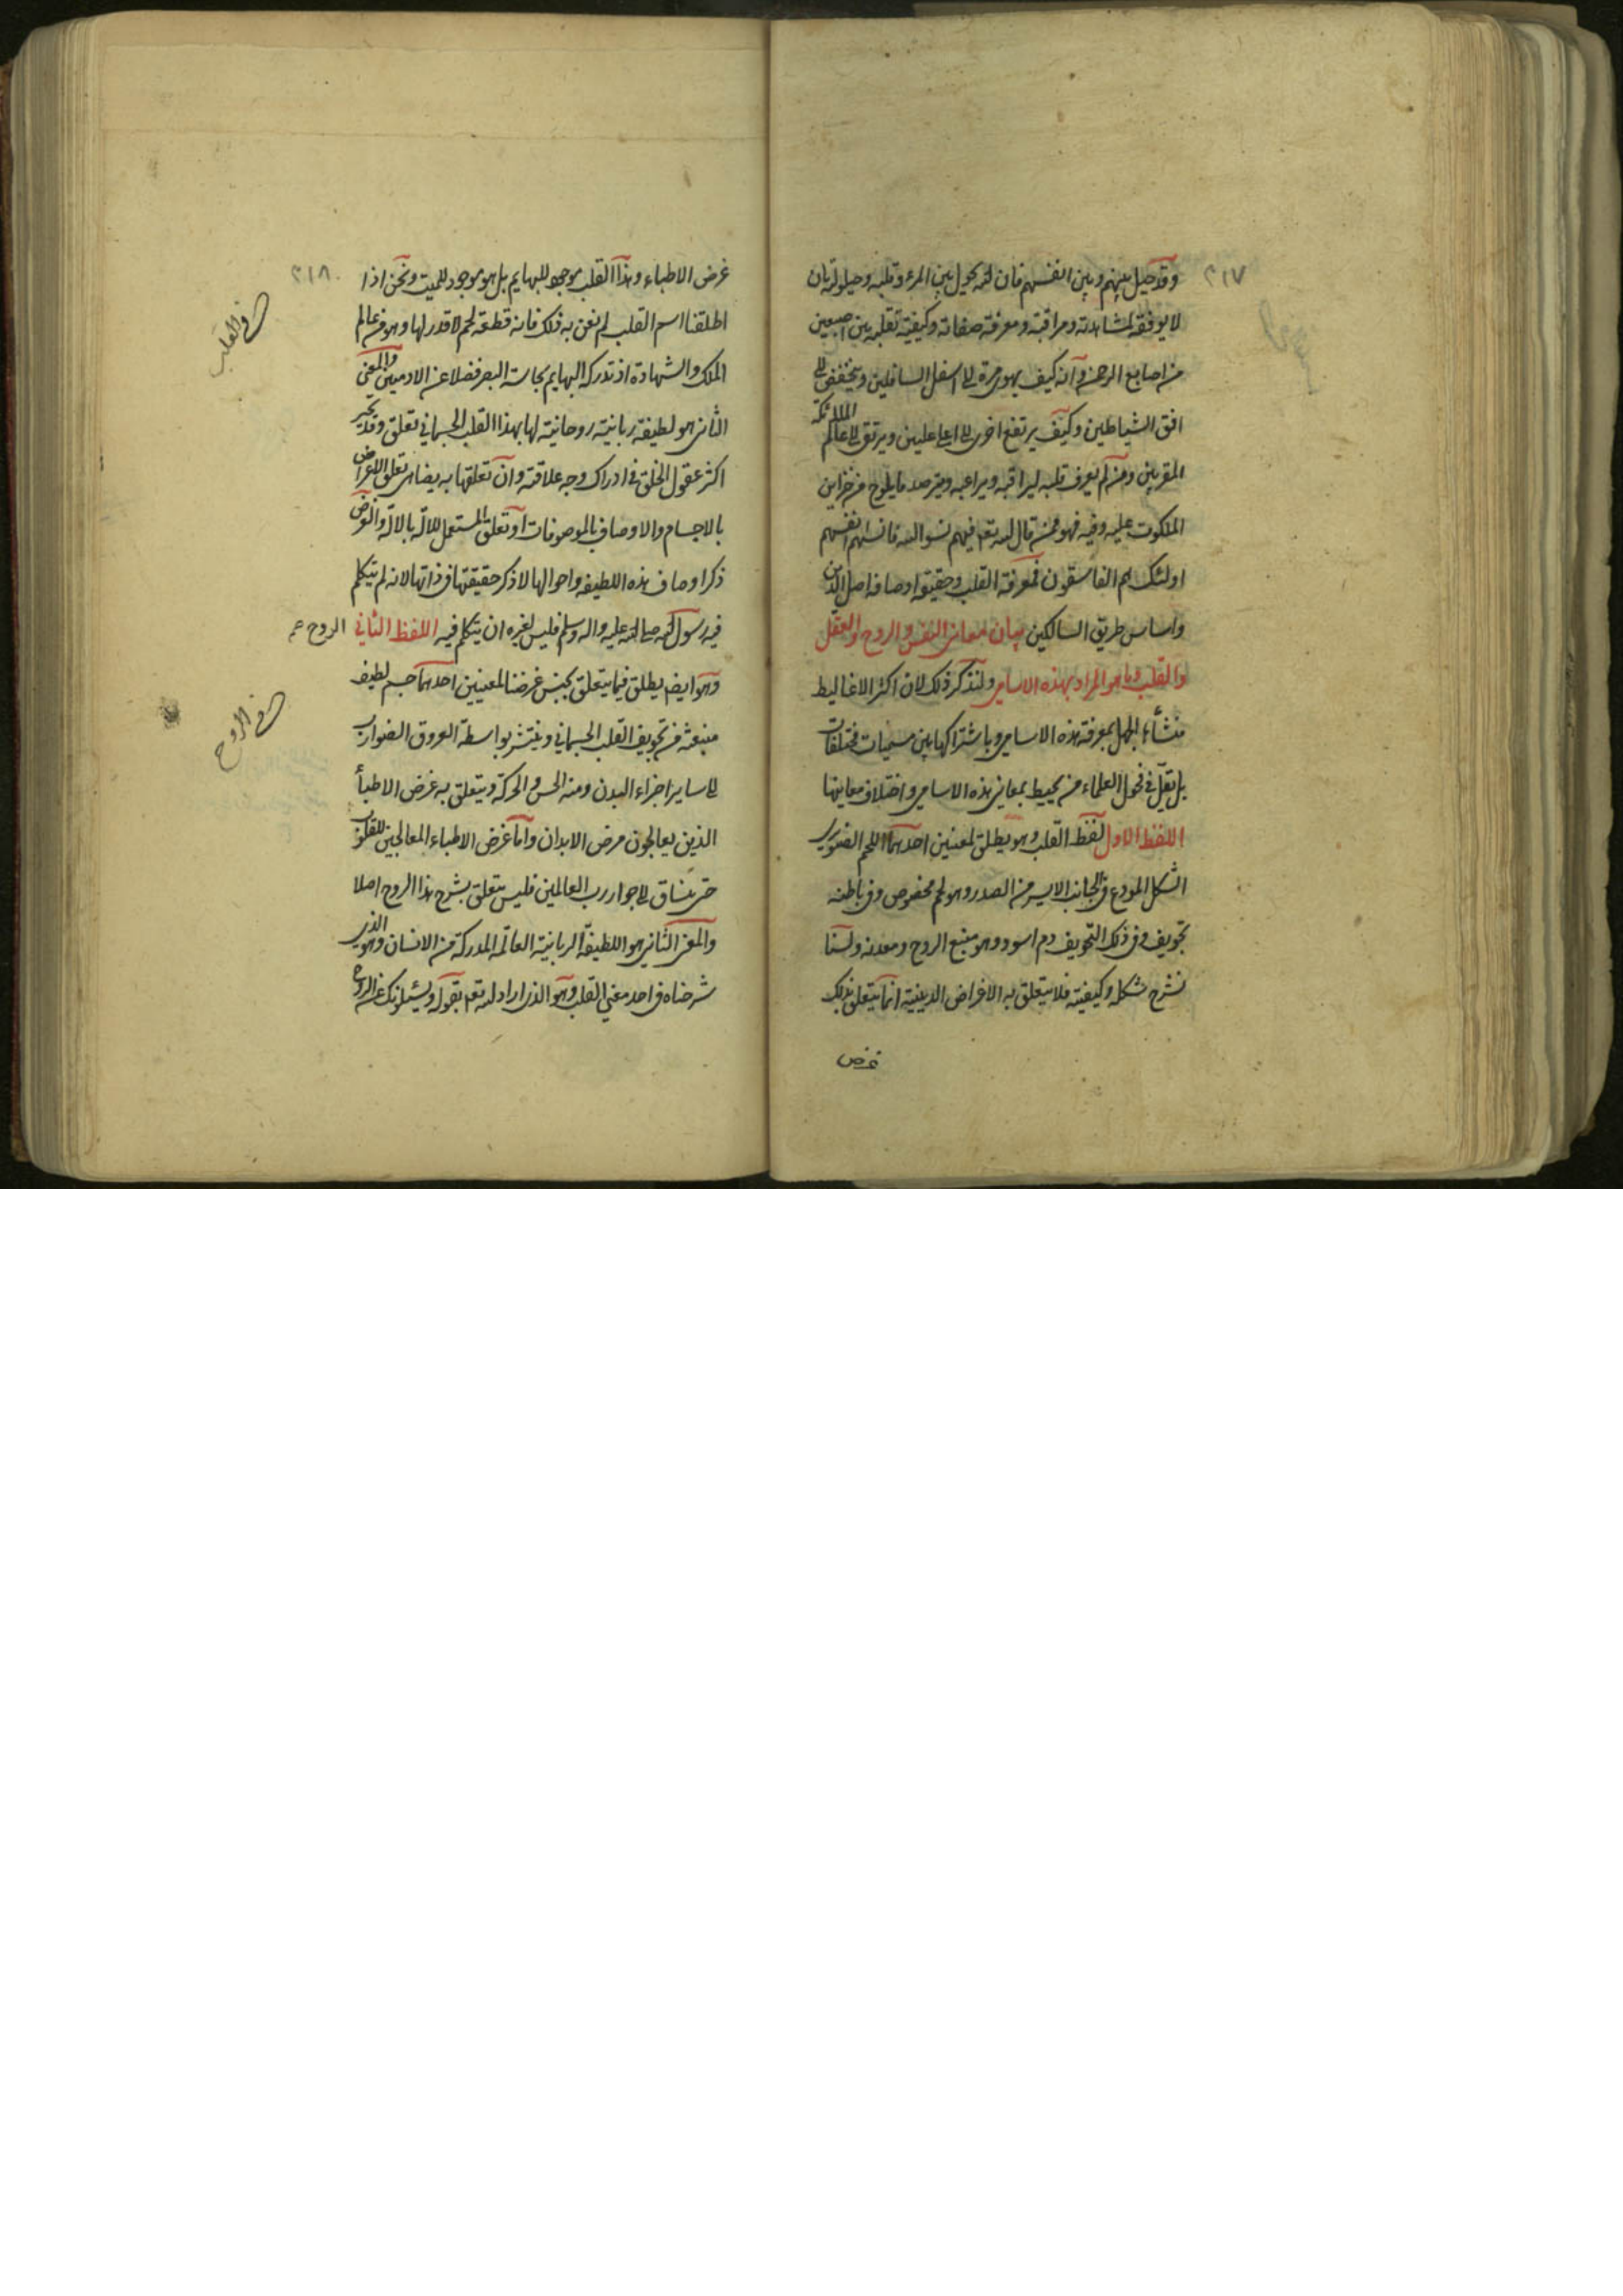 ٢١٧
وقد حيل بينهم وبين انفسهم فان الله يحول بين المرء وقلبه وحيلولته بان
لا يوفقه لمشاهدته ومراقبته ومعرفة صفاته وكيفية تقلبه بين اصبعين
من اصابع الرحمن وانه كيف يهوى مرة الى اسفل السافلين وينخفض الى
افق الشياطين وكيف يرتفع اخرى الى اعلى عليين ويرتقى الى عالم الملائكة
المقربين ومن لم يعرف قلبه ليراقبه ويراعيه ويترصد ما يلوح من خزاين
الملكوت عليه وفيه فهو ممن قال الله تعم فيهم نسوا الله فانساهم انفسهم
اولئك هم الفاسقون فمعرفة القلب وحقيقة اوصافه اصل الدين
واساس طريق السالكين بيان معانى النفس والروح والعقل
والقلب وما هو المراد بهذه الاسامى ولنذكر ذلك لان اكثر الاغاليط
منشأها الجهل بمعرفة هذه الاسامى وباشتراكها بين مسميات مختلفات
بل يقل فى فحول العلماء من يحيط بمعانى هذه الاسامى واختلاف معانيها
اللفظ الاول لفظ القلب وهو يطلق لمعنيين احدهما اللحم الصنوبرى
الشكل المودع فى الجانب الايسر من الصدر وهو لحم مخصوص وفى باطنه
تجويف وفى ذلك التجويف دم اسود وهو منبع الروح ومعدنه ولسنا
نشرح شكله وكيفيته فلا يتعلق به الاغراض الدينية انما يتعلق بذلك
غرض
٢١٨
غرض الاطباء وهذا القلب موجود للبهايم بل هو موجود للميت ونحن اذا
اطلقنا اسم القلب لم نعن به ذلك فانه قطعة لحم لا قدر لها وهو من عالم
الملك والشهادة اذ تدركه البهايم بحاسة البصر فضلا عن الادميين والمعنى
الثانى هو لطيفة ربانية روحانية لها بهذا القلب الجسمانى تعلق وقد تحير
اكثر عقول الخلق فى ادراك وجه علاقته وان تعلقها به يضاهى تعلق الاعراض
بالاجسام والاوصاف بالموصوفات او تعلق المستعمل للالة بالالة والغرض
ذكر اوصاف هذه اللطيفه واحوالها لا ذكر حقيقتها فى ذاتها لانه لم يتكلم
فيه رسول الله صلى الله عليه واله وسلم فليس لغيره ان يتكلم فيه اللفظ الثانى الروح
وهو ايضا يطلق فيما يتعلق بجنس غرضنا لمعنيين احدهما جسم لطيف
منبعثه من تجويف القلب الجسمانى وينتشر بواسطة العروق الضوارب
الى ساير اجزاء البدن ومنه الحس والحركة ويتعلق به غرض الاطباء
الذين يعالجون مرض الابدان واما غرض الاطباء المعالجين للقلوب
حتى تنساق الى جوار رب العالمين فليس يتعلق بشرح هذا الروح اصلا
والمعنى الثانى هو اللطيفة الربانية العالمة المدركة من الانسان وهو الذى
شرحناه فى احد معنى القلب وهو الذى اراد الله تعم بقوله ويسئلونك عن الروح
فى القلب
فى الروح